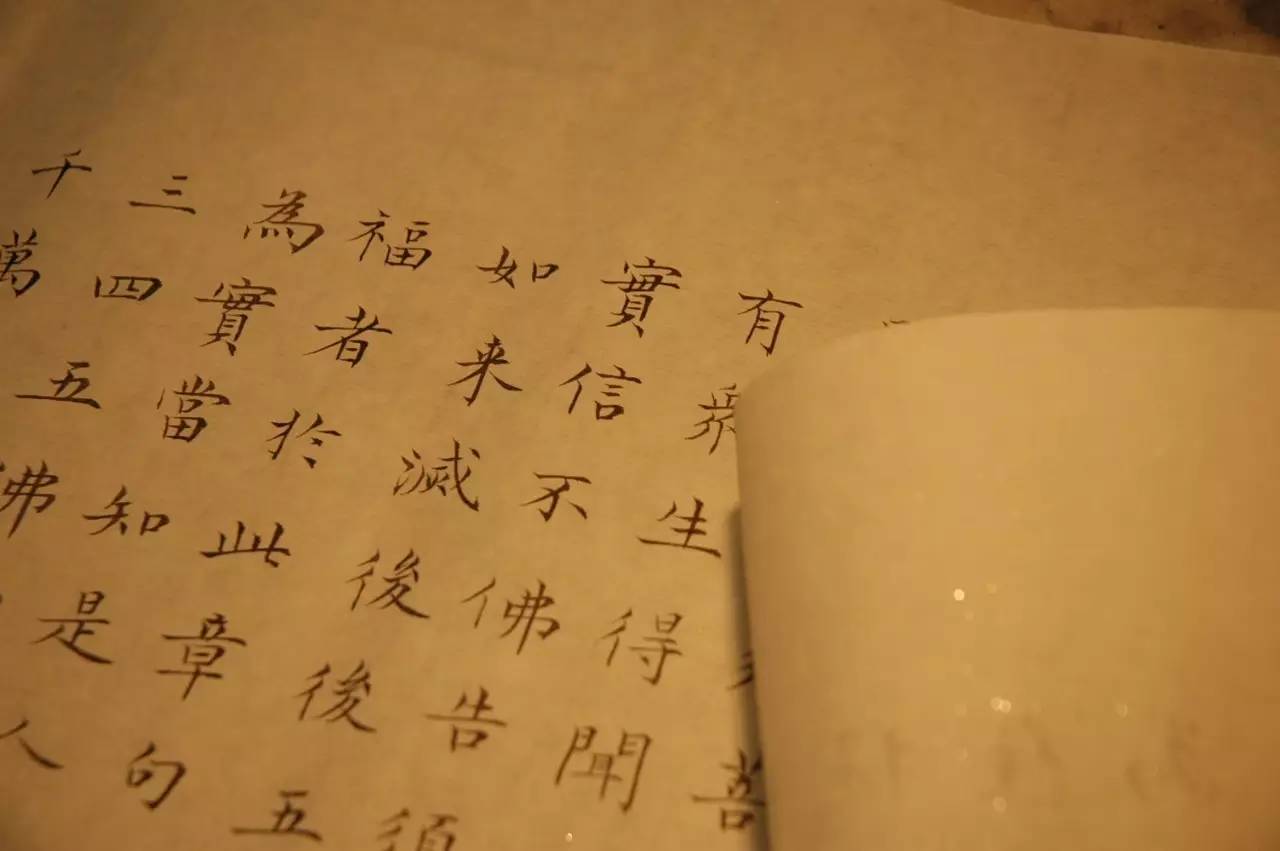 有衆生得聞
實信不佛告須
如来滅後後五
福者於此章句
為實當知是人
三四五佛
千萬